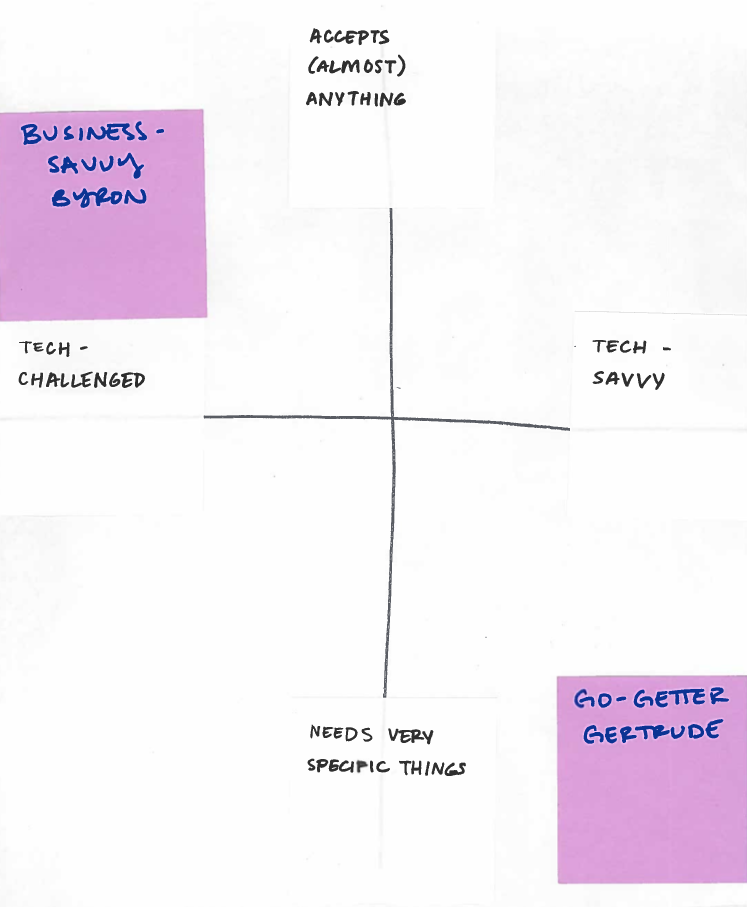 ACCEPTS
(ALMOST)
ANYTHING
BUSINESS-
SAVVY
BYRON
TECH-
CHALLENGED
TECH-
SAVVY
NEEDS VERY
SPECIFIC THINGS
GO-GETTER
GERTRUDE